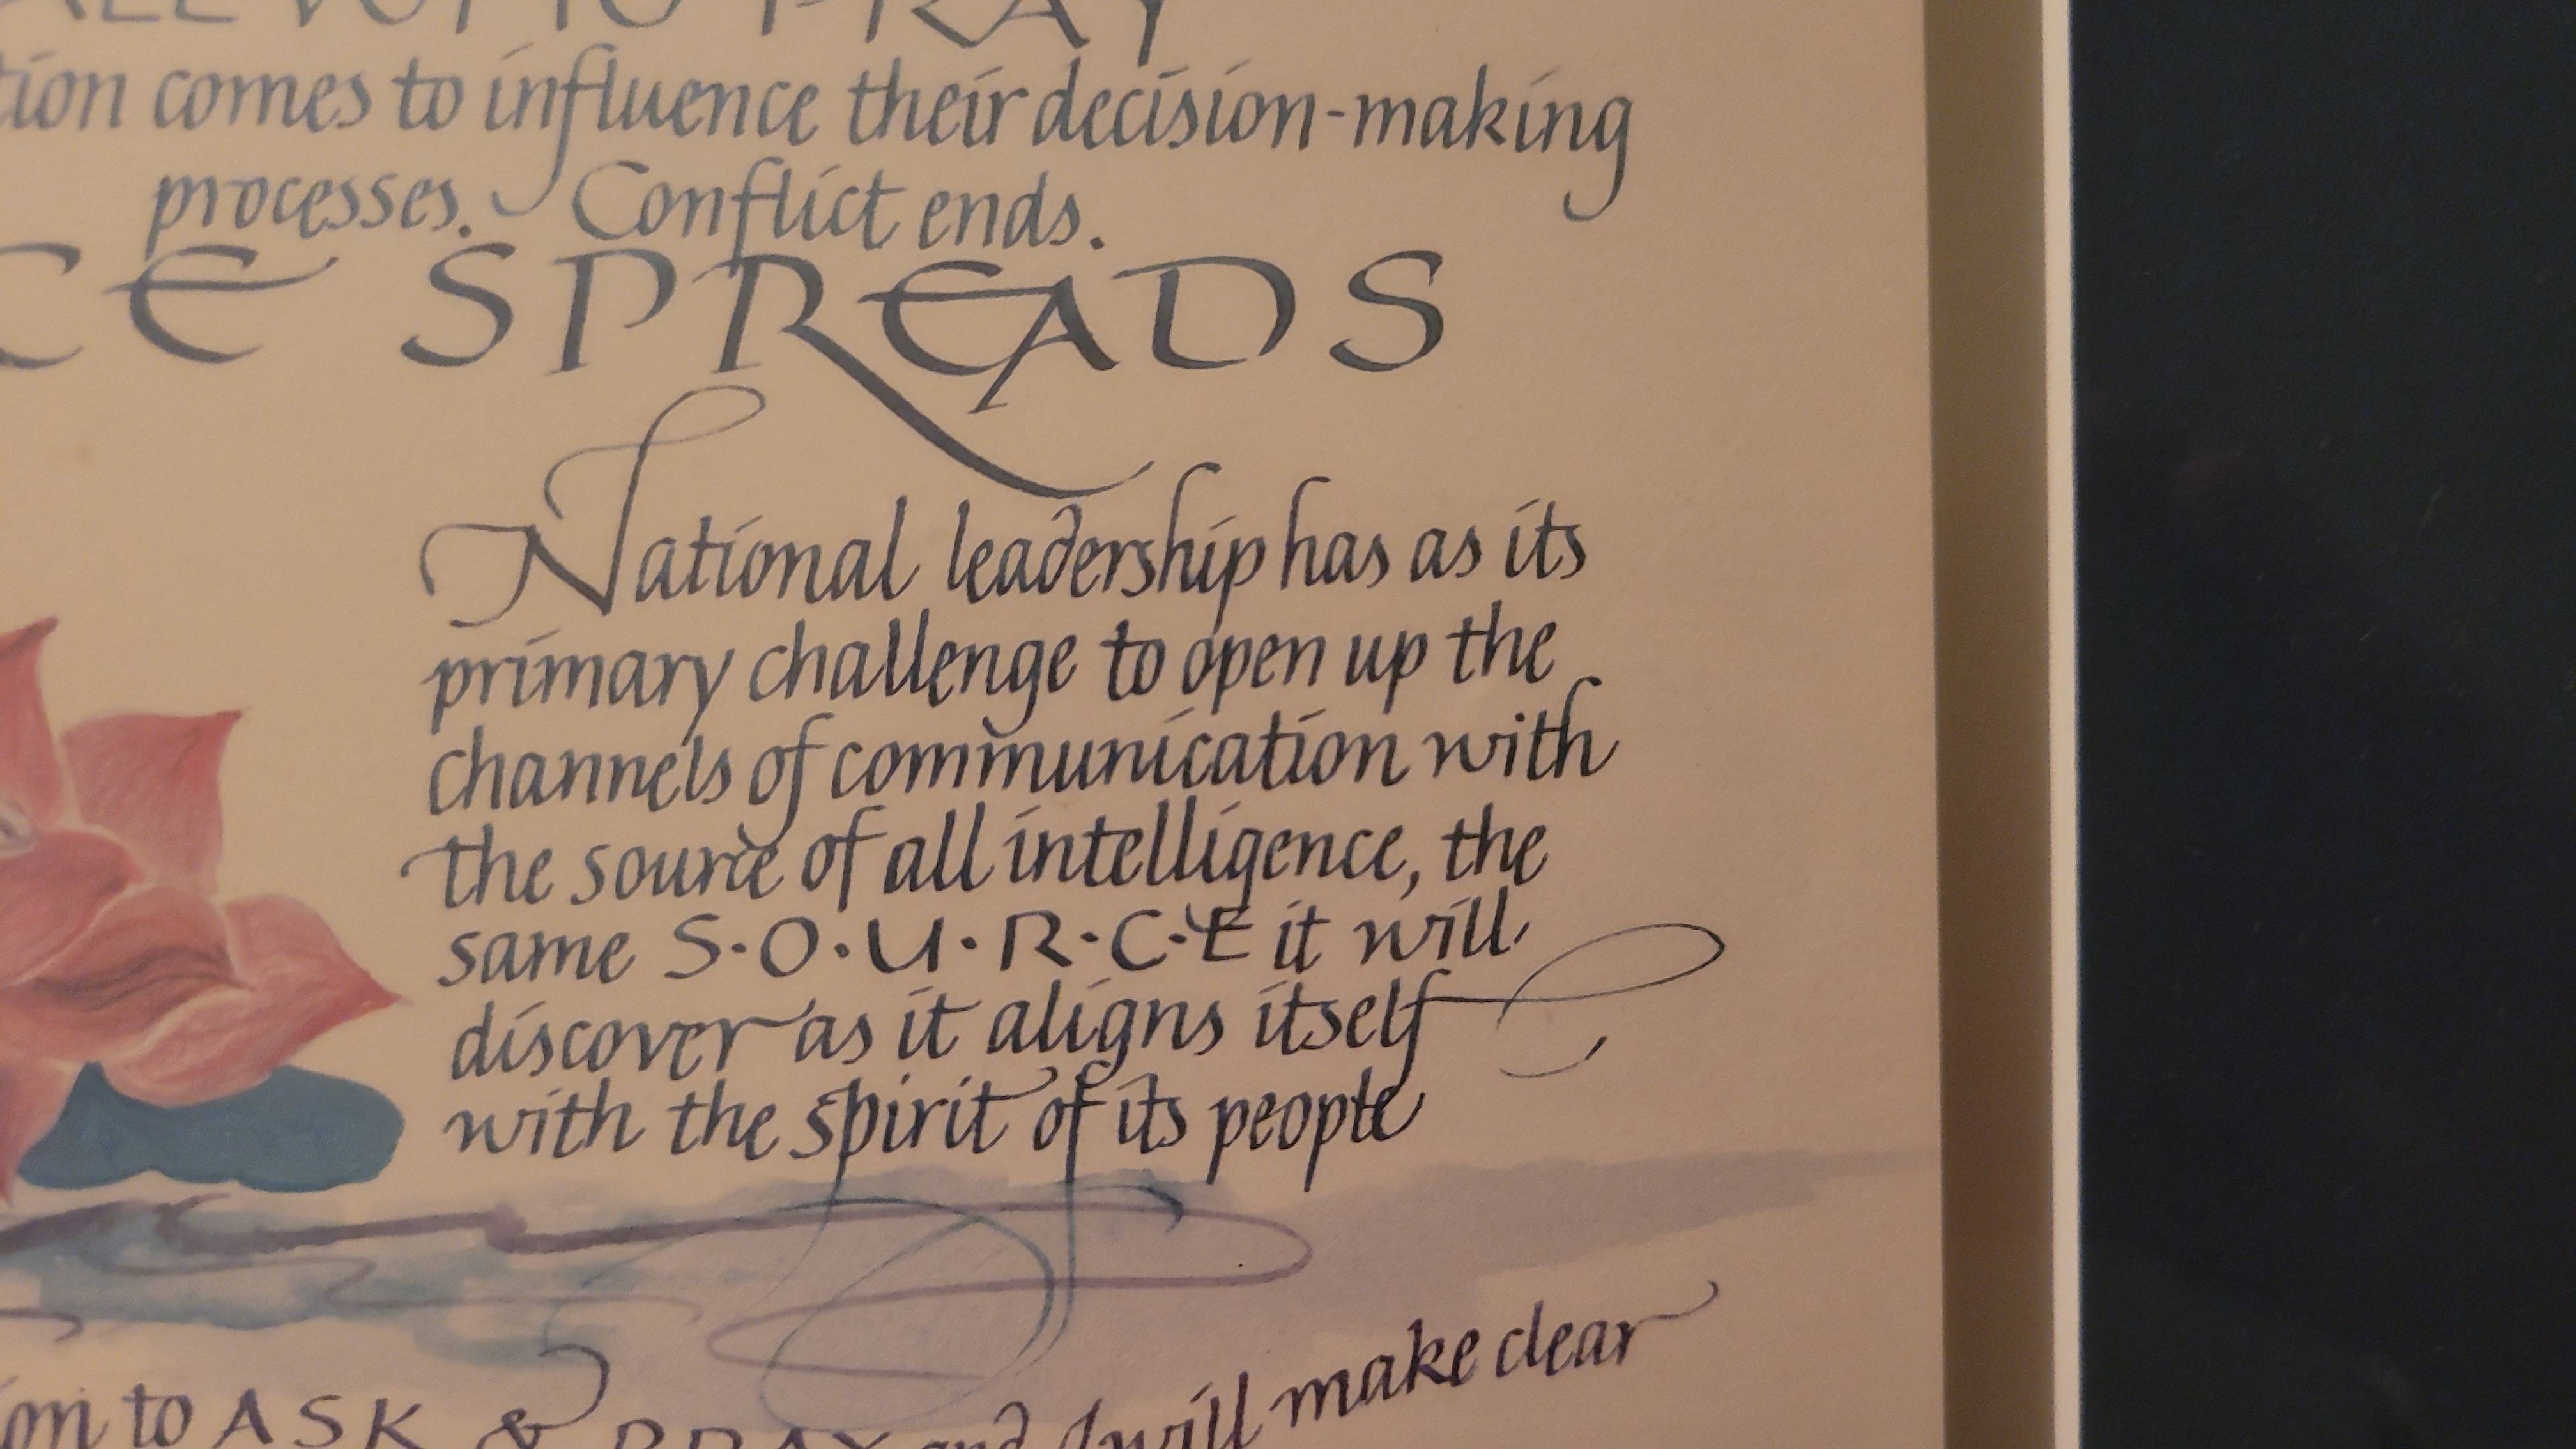 ALL TO PRAY
tion comes to influence their decision-making
processes. Conflict ends.
CE SPREADS
National leadership has as its
primary challenge to open up the
channels of communication with
the source of all intelligence, the
same S·O·U·R·C·E it will
discover as it aligns itself
with the spirit of its people
on to ASK & PRAY and I will make clear